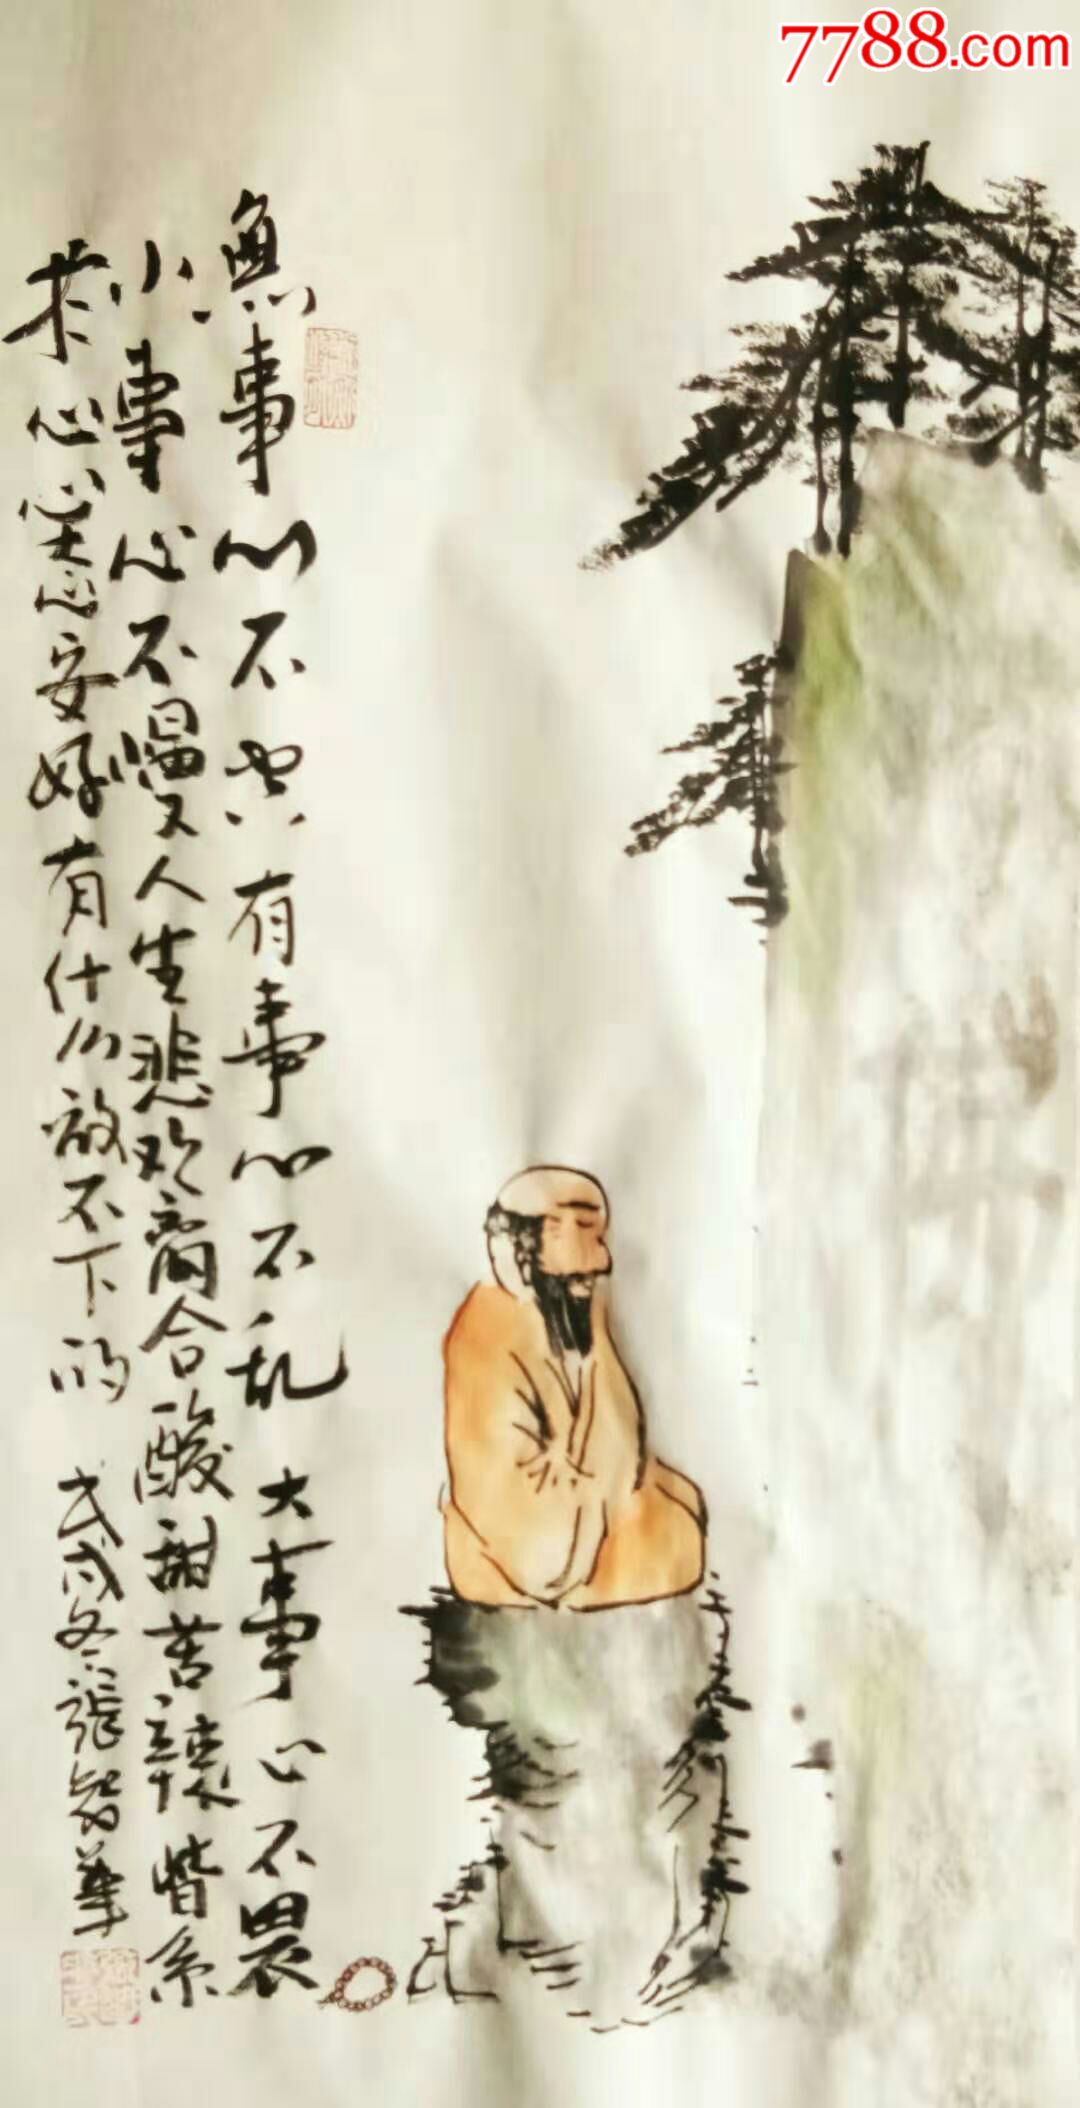 7788.com
無事心不空有事心不乱大事心不畏
小事心不慢人生悲欢离合酸甜苦辣皆系
於心心态安好有什么放不下的 戊戌冬張智華